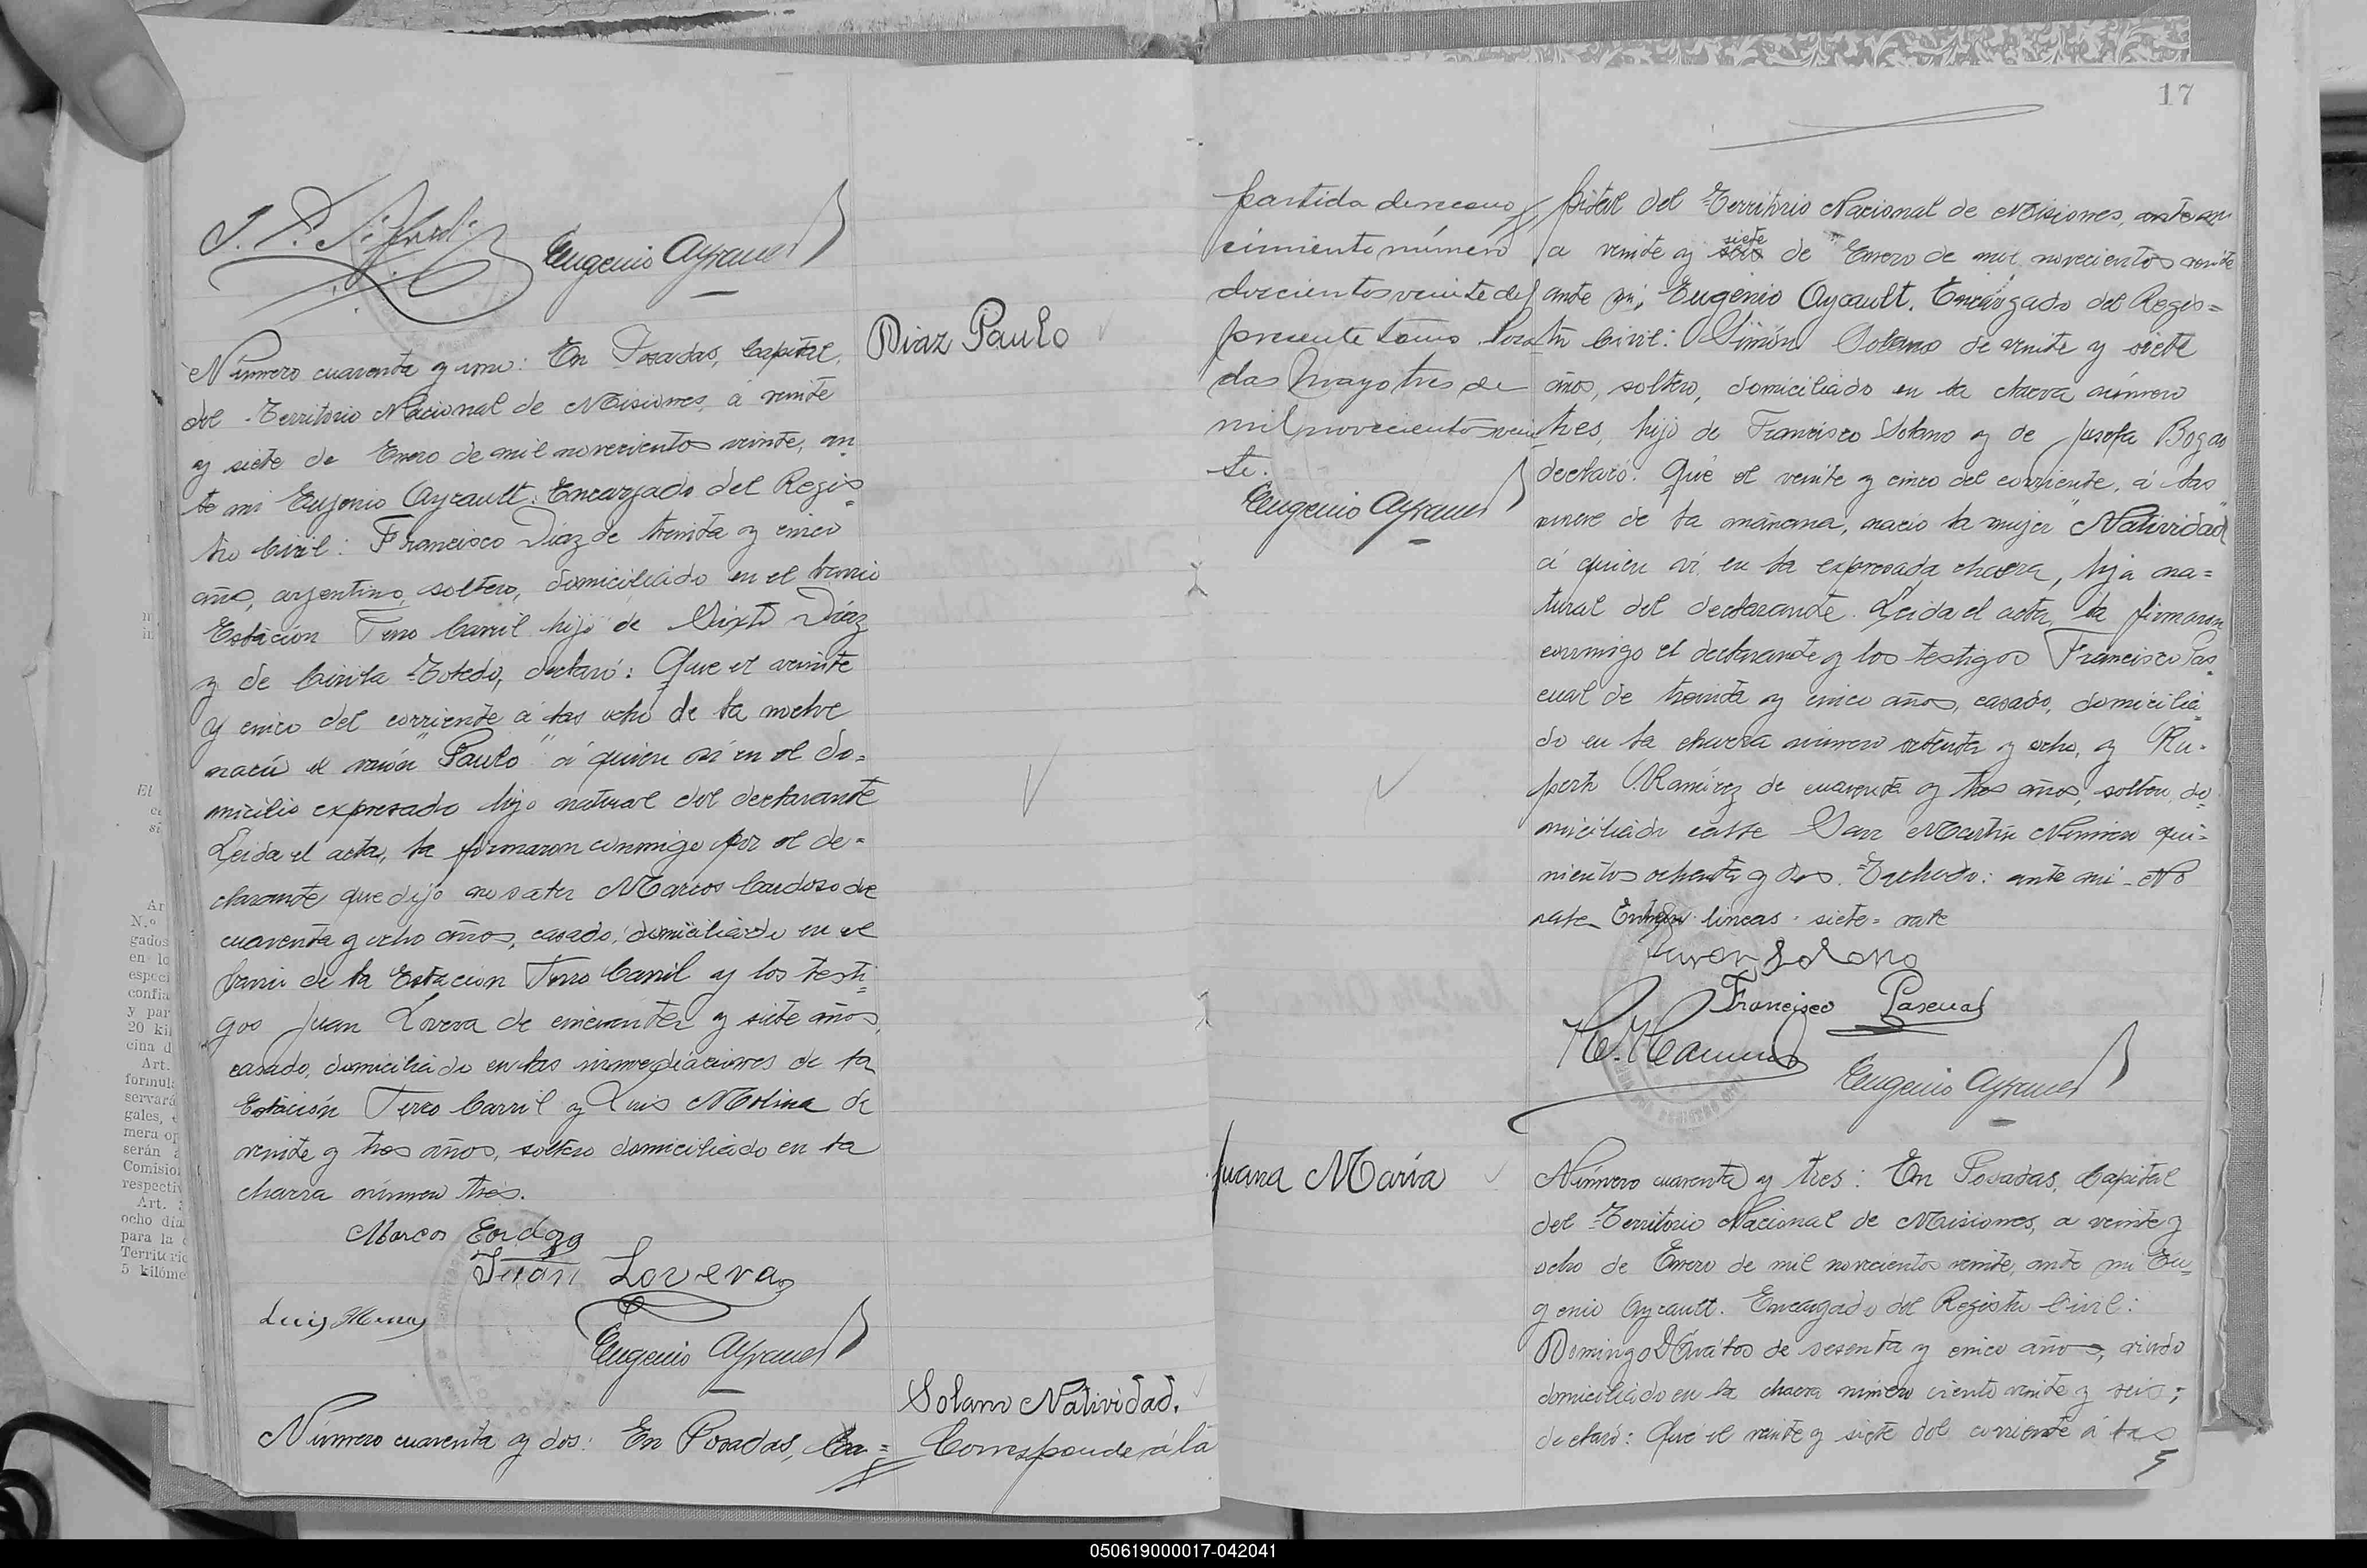 Eugenio Ayrault
Diaz Paulo
Número cuarenta y uno: En Posadas, Capital
del Territorio Nacional de Misiones, á veinte
y siete de Enero de mil novecientos veinte, an
te mi Eugenio Ayrault, Encargado del Regis=
tro Civil: Francisco Díaz de treinta y cinco
años, argentino, soltero, domiciliado en el barrio
Estación Ferro Carril hijo de Sixto Díaz
y de Cirila Toledo, declaró: Que el veinte
y cinco del corriente á las ocho de la noche
nació el varón "Paulo" á quien ví en el do=
micilio expresado hijo natural del declarante
Leida el acta, la firmaron conmigo por el de=
clarante que dijo no saber Marcos Cardozo de
cuarenta y ocho años, casado, domiciliado en el
barrio de la Estacion Ferro Carril y los testi=
gos Juan Lovera de cincuenta y siete años,
casado, domiciliado en las inmediaciones de la
Estación Ferro Carril y Luis Molina de
veinte y tres años, soltero domiciliado en la
chacra número tres.
Marcos Cardozo
Juan Lovera
Luis
Eugenio Ayrault
Solano Natividad.
Número cuarenta y dos: En Posadas, Ca=
Corresponde á la
17
partida de reconocimiento número
doscientos veinte del
presente tomo Posa
das Mayo tres de
mil novecientos vein
te.
Eugenio Ayrault
pital del Territorio Nacional de Misiones, ante mi
a veinte y siete de Enero de mil novecientos veinte
ante mi, Eugenio Ayrault, Encargado del Regis=
tro Civil: Solano de veinte y siete
años, soltero, domiciliado en la chacra número
tres, hijo de Francisco Solano y de Josefa Bogao
declaró: Qué el veinte y cinco del corriente, á las
nueve de la mañana, nació la mujer "Natividad"
á quien ví en la expresada chacra, hija na=
tural del declarante. Leida el acta, la firmaron
conmigo el declarante y los testigos Francisco Pas=
cual de treinta y cinco años, casado, domicilia=
do en la chacra número setenta y ocho, y Ru=
perto Ramírez de cuarenta y tres años, soltero, do=
miciliado calle San Martín Número qui=
nientos ochenta y dos. Tachado: ante mi - No
vale Entre lineas - siete = vale
Solano
Francisco Pascual
Eugenio Ayrault
Juana María
Número cuarenta y tres: En Posadas, Capital
del Territorio Nacional de Misiones, a veinte y
ocho de Enero de mil novecientos veinte, ante mi Eu=
genio Ayrault. Encargado del Registro Civil:
Domingo de sesenta y cinco años, viudo
domiciliado en la chacra número ciento veinte y seis;
declaró: Que el veinte y siete del corriente á las
050619000017-042041